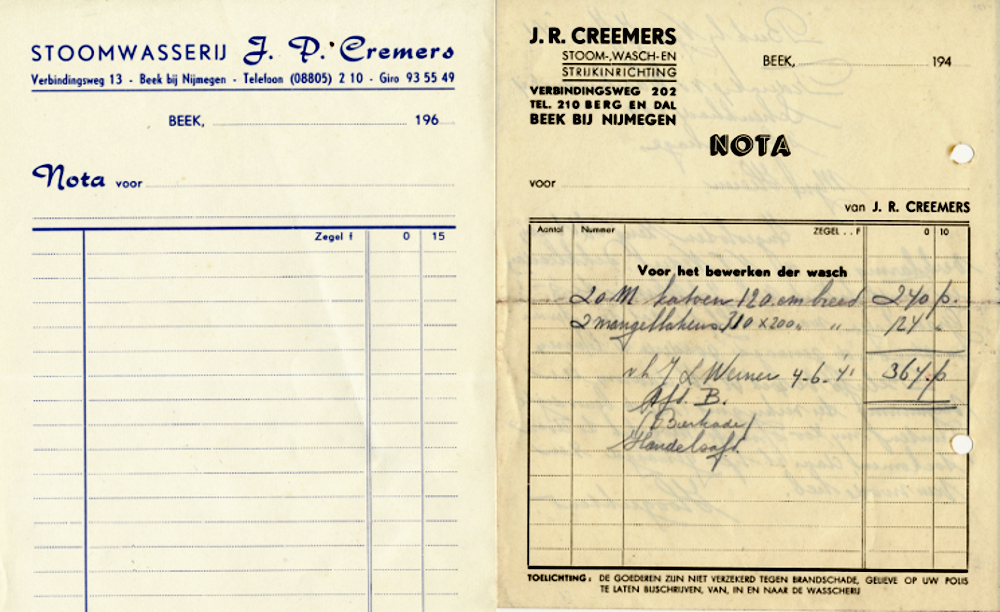 STOOMWASSERIJ J. P. Cremers
Verbindingsweg 13 - Beek bij Nijmegen - Telefoon (08805) 2 10 - Giro 93 55 49
BEEK, 196
Nota voor
Zegel f 0 15
J. R. CREEMERS
STOOM-, WASCH- EN
STRIJKINRICHTING
VERBINDINGSWEG 202
TEL. 210 BERG EN DAL
BEEK BIJ NIJMEGEN
BEEK, 194
NOTA
voor
van J. R. CREEMERS
Aantal Nummer ZEGEL . . F 0 10
Voor het bewerken der wasch
20 M katoen 120 cm breed 240 p.
2 mangellakens 310 x 200 " " 124 "
v.h. J L Werner 4-6-'41 364. p
Afd. B.
(Bierkade)
Handelsafd.
TOELICHTING: DE GOEDEREN ZIJN NIET VERZEKERD TEGEN BRANDSCHADE, GELIEVE OP UW POLIS
TE LATEN BIJSCHRIJVEN, VAN, IN EN NAAR DE WASSCHERIJ